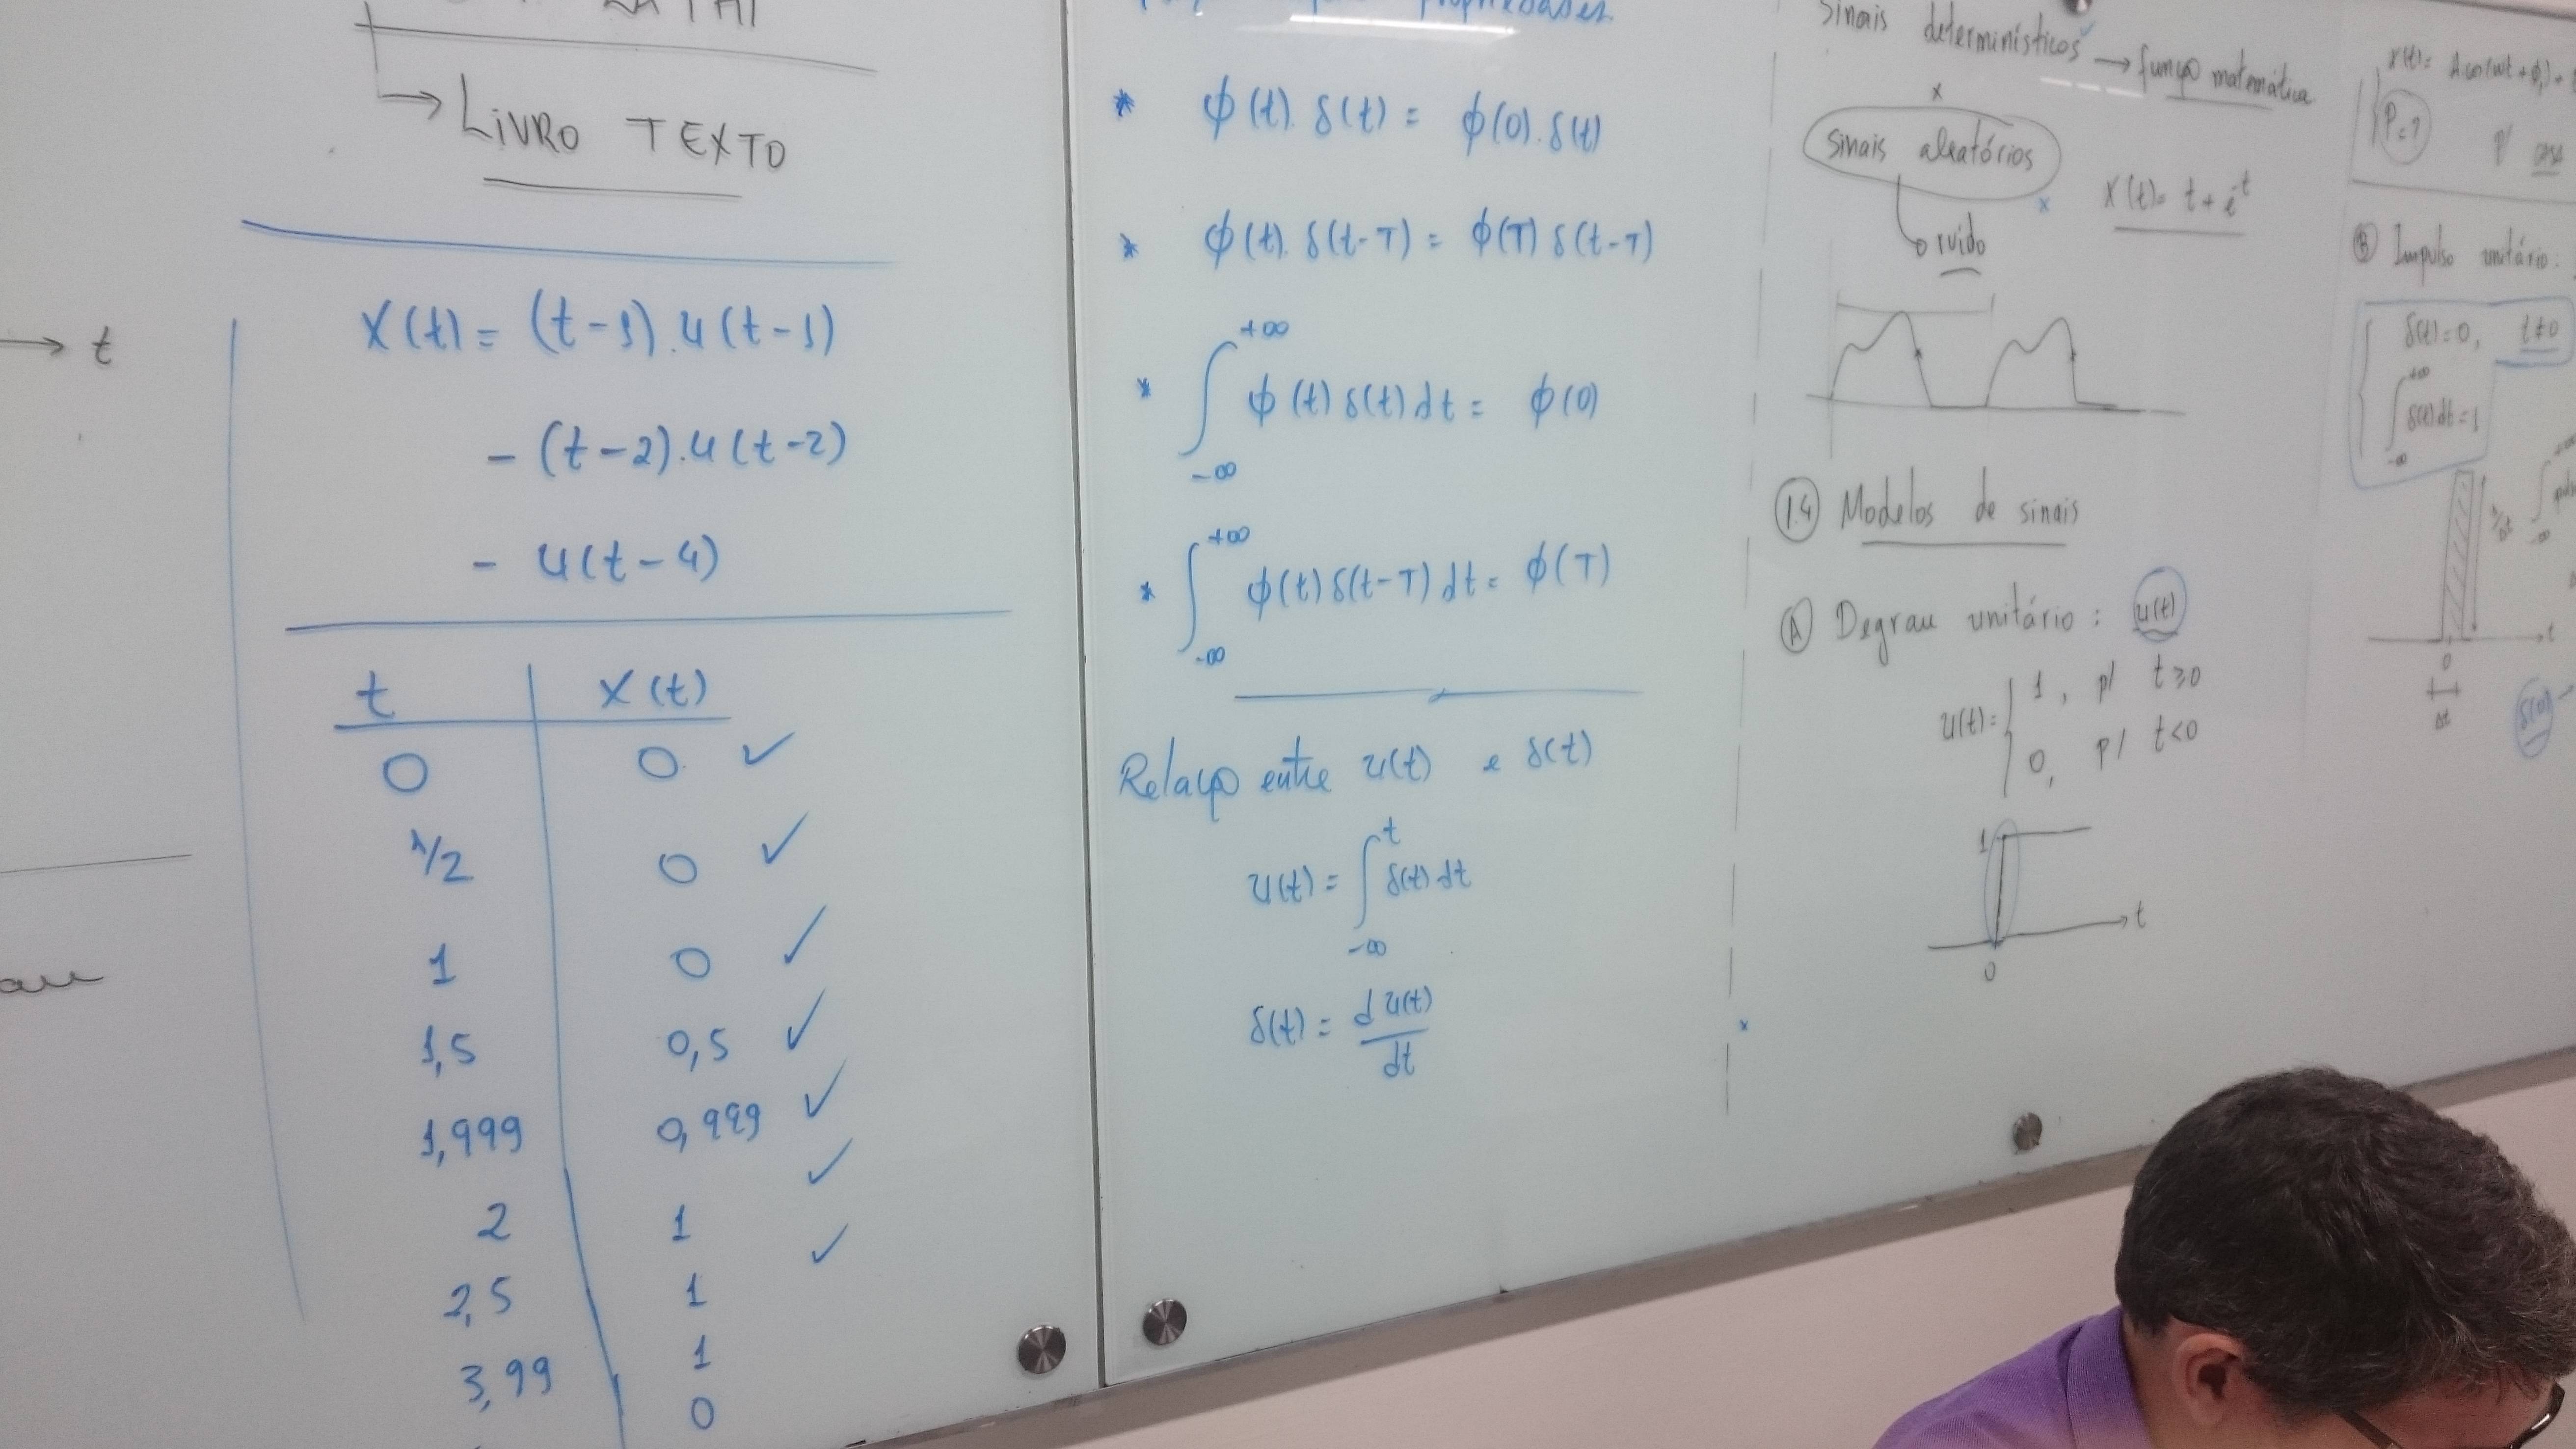 LIVRO TEXTO
t
x(t) = (t-1).u(t-1)
- (t-2).u(t-2)
- u(t-4)
t x(t)
0 0
1/2 0
1 0
1,5 0,5
1,999 0,999
2 1
2,5 1
3,99 1
0
propriedades
* ϕ(t).δ(t) = ϕ(0).δ(t)
* ϕ(t).δ(t-T) = ϕ(T)δ(t-T)
* ∫_{-∞}^{+∞} ϕ(t)δ(t)dt = ϕ(0)
* ∫_{-∞}^{+∞} ϕ(t)δ(t-T)dt = ϕ(T)
Relação entre u(t) e δ(t)
u(t) = ∫_{-∞}^{t} δ(t)dt
δ(t) = du(t)/dt
Sinais determinísticos → função matemática
x
sinais aleatórios
x
x(t) = t + e^{-t}
ruído
1.4 Modelos de sinais
A Degrau unitário: u(t)
u(t) = { 1, p/ t≥0
0, p/ t<0
1
t
0
x(t) = A cos(ωt + ϕ1) +
P=? p/ casa
B Impulso unitário:
δ(t)=0, t≠0
∫_{-∞}^{+∞} δ(t)dt = 1
1/Δt
t
0
Δt
δ(0)